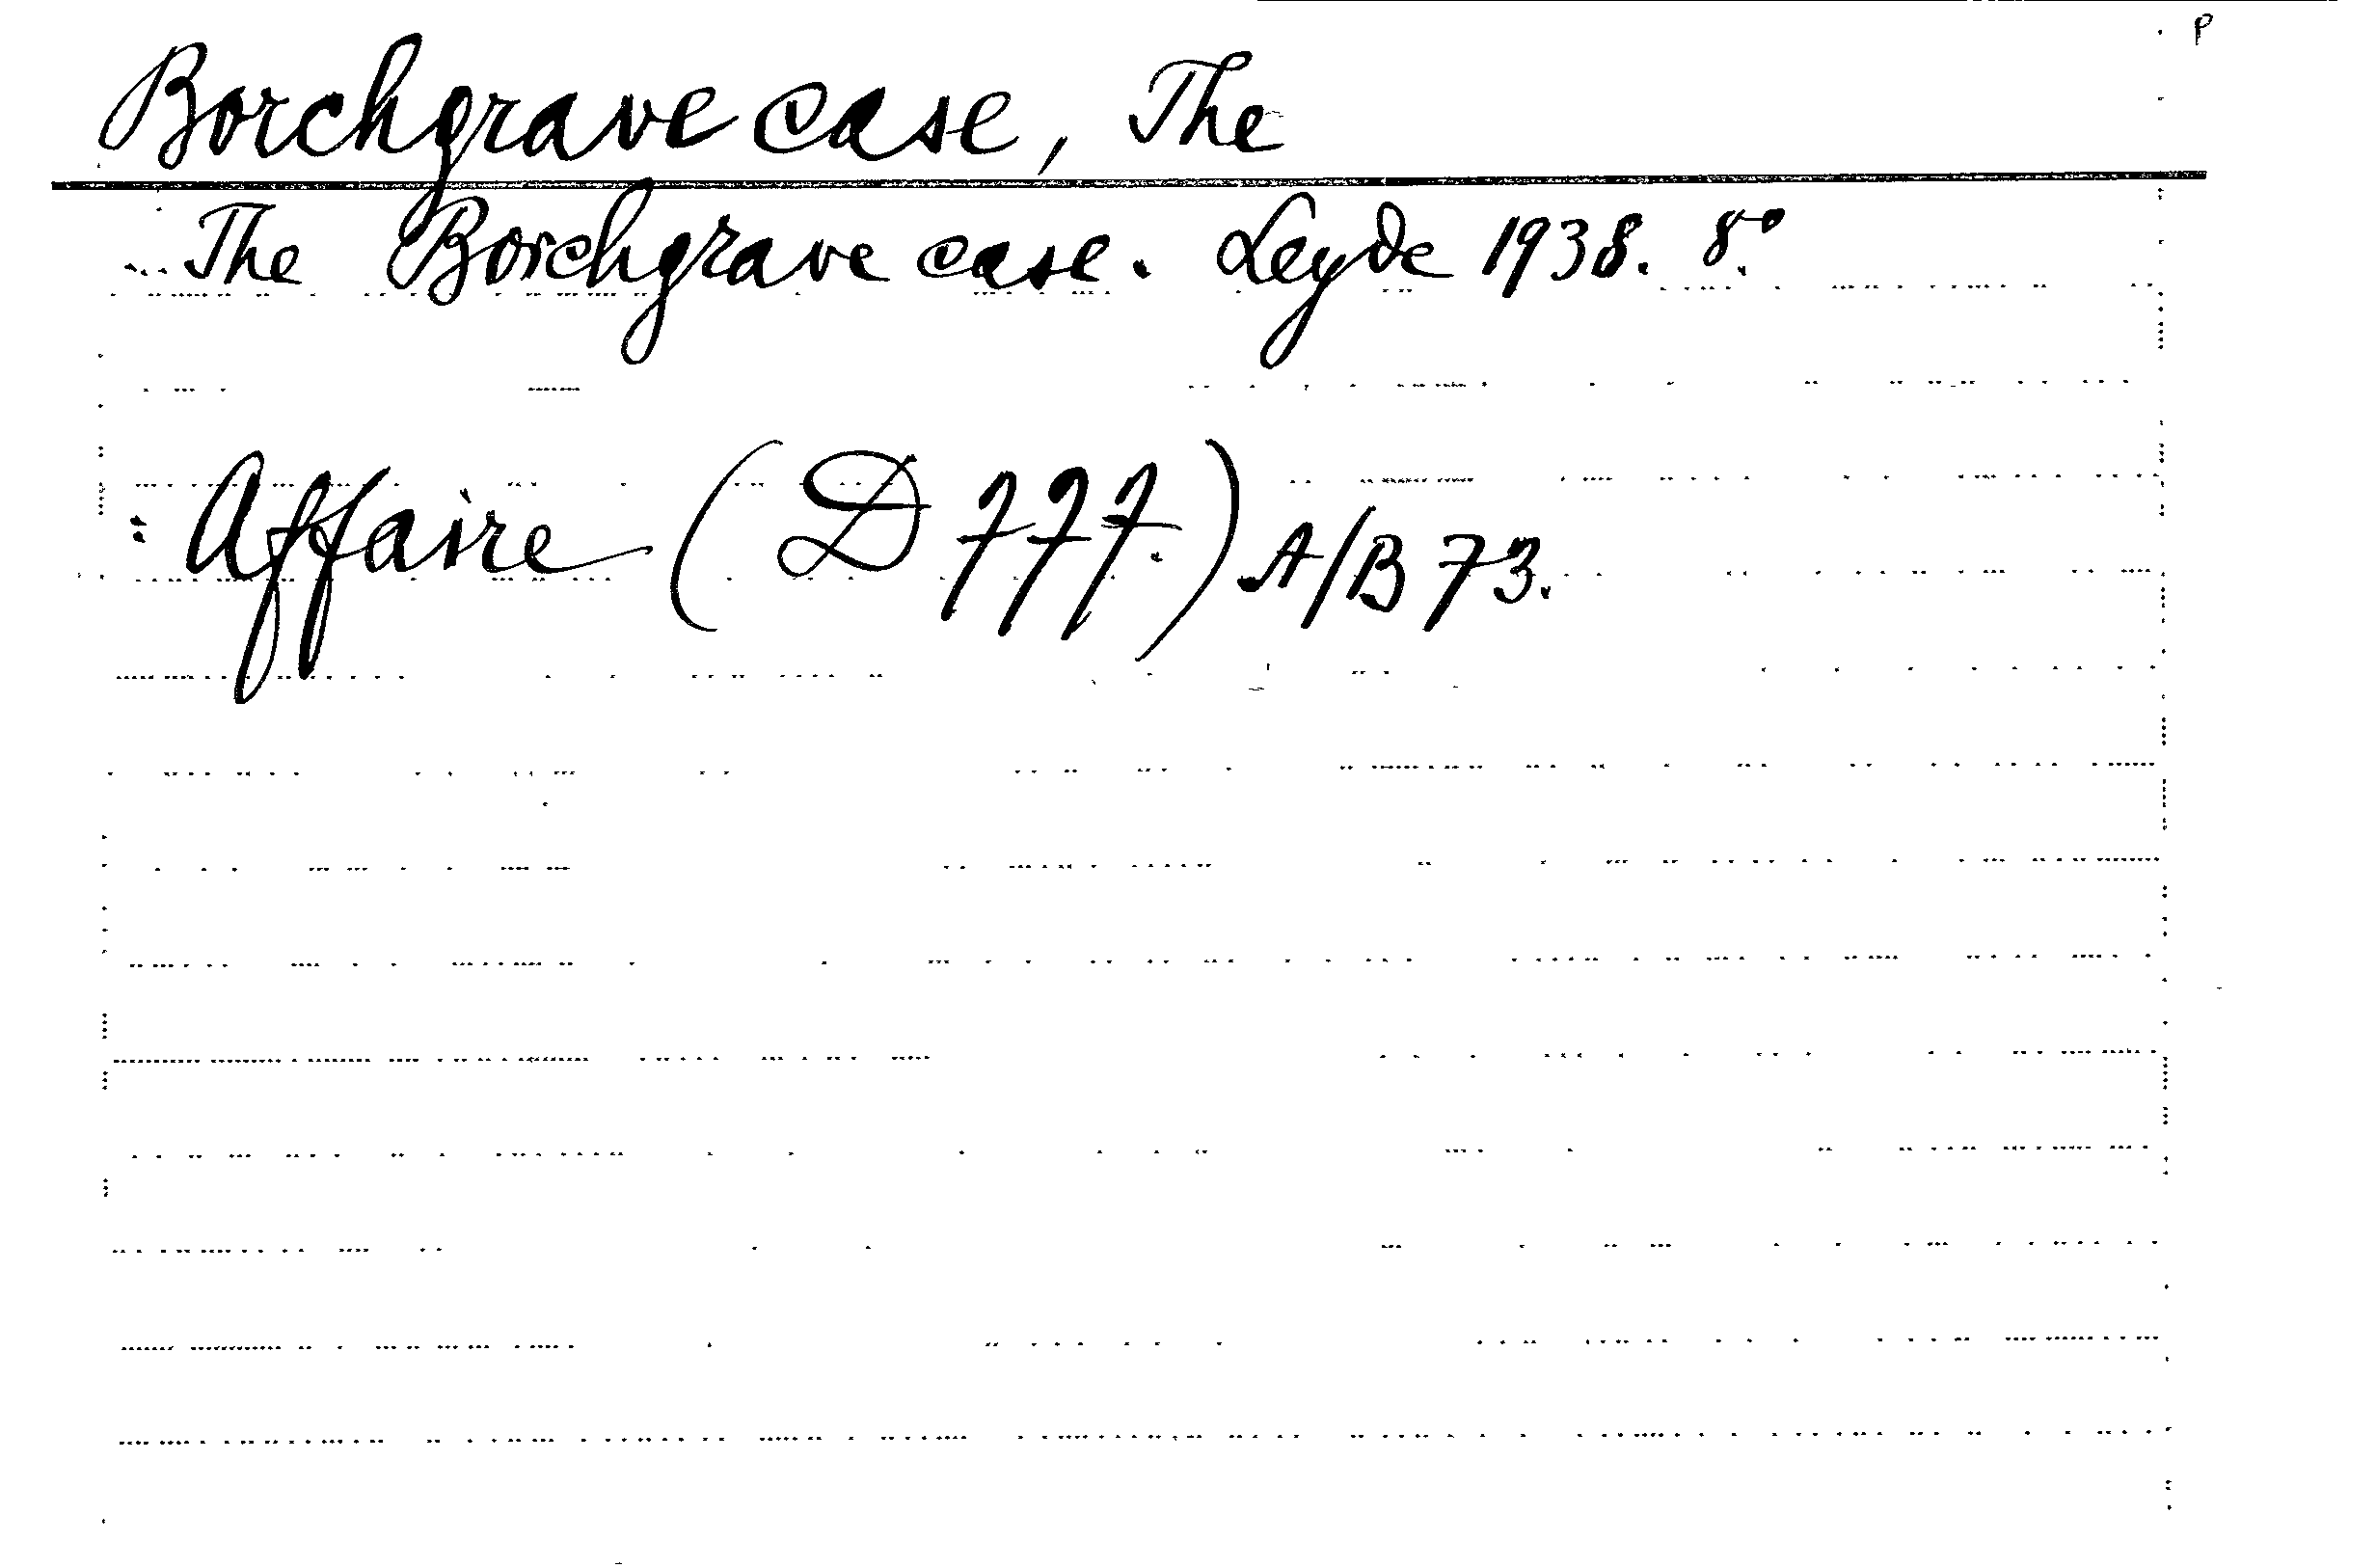 P
Borchgrave case, The
The Borchgrave case. Leyde 1938. 8°.
Affaire (D 777.) A/B 73.